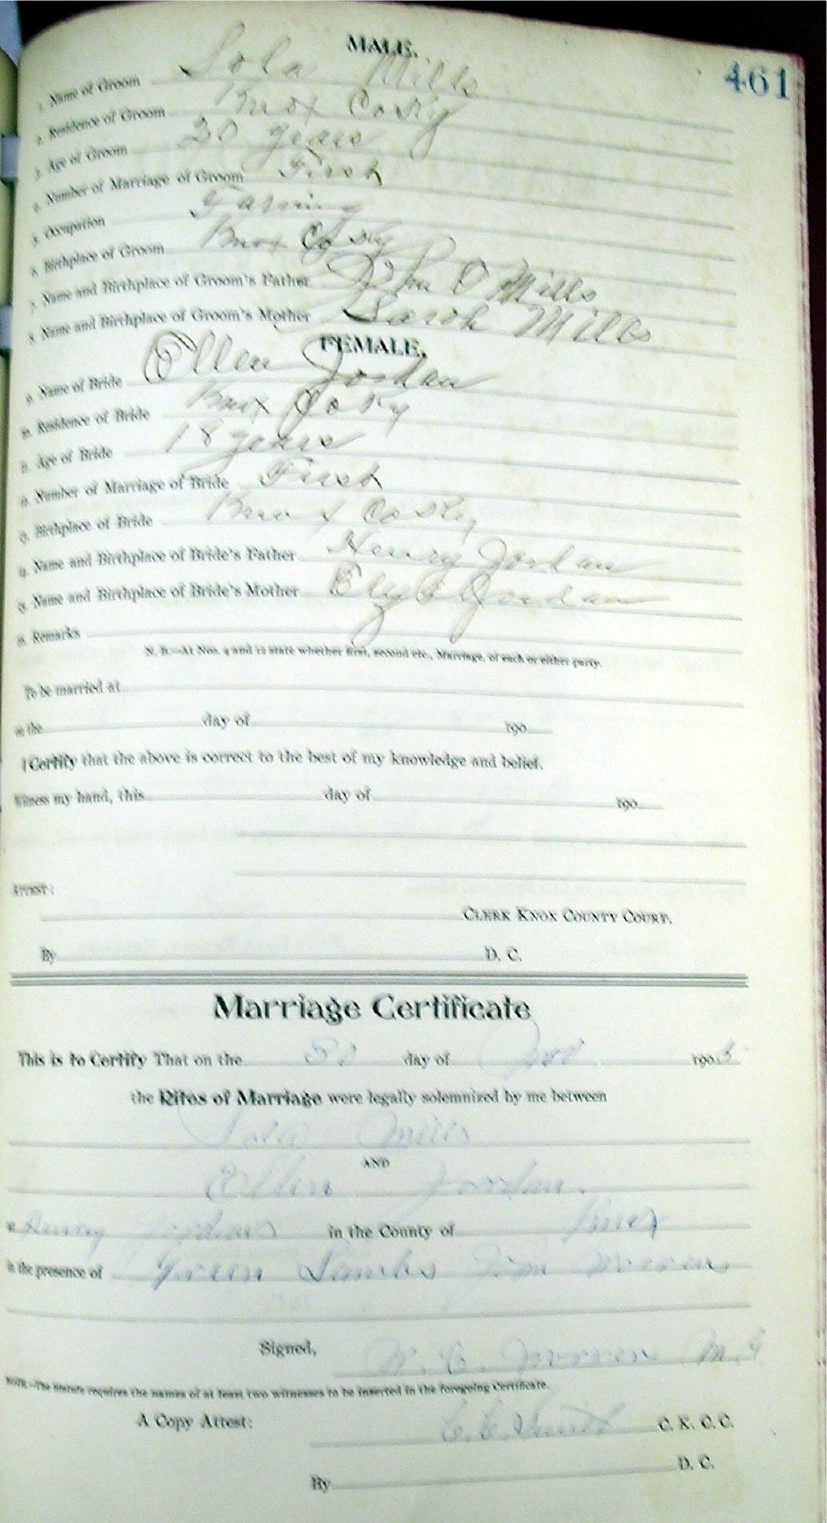 MALE.
461
1. Name of Groom Sola Mills
2. Residence of Groom Knox Co Ky
3. Age of Groom 20 years
4. Number of Marriage of Groom First
5. Occupation Farming
6. Birthplace of Groom Knox Co Ky
7. Name and Birthplace of Groom's Father John Mills
8. Name and Birthplace of Groom's Mother Sarah Mills
FEMALE.
9. Name of Bride Ellen Jordan
10. Residence of Bride Knox Co Ky
11. Age of Bride 18 years
12. Number of Marriage of Bride First
13. Birthplace of Bride Knox Co Ky
14. Name and Birthplace of Bride's Father Henry Jordan
15. Name and Birthplace of Bride's Mother Jordan
16. Remarks
N. B.—At Nos. 4 and 12 state whether first, second etc., Marriage, of each or either party.
To be married at
on the day of 190
I Certify that the above is correct to the best of my knowledge and belief.
Witness my hand, this day of 190
ATTEST:
CLERK KNOX COUNTY COURT.
By D. C.
Marriage Certificate
This is to Certify That on the 30 day of Nov 190
the Rites of Marriage were legally solemnized by me between
Sola Mills
AND
Ellen Jordan.
at Henry Jordans in the County of Knox
in the presence of Green Jim
Signed, W. C. M. G
NOTE.—The Statute requires the names of at least two witnesses to be inserted in the foregoing Certificate.
A Copy Attest: C. C. Smith C. K. C. C.
By D. C.